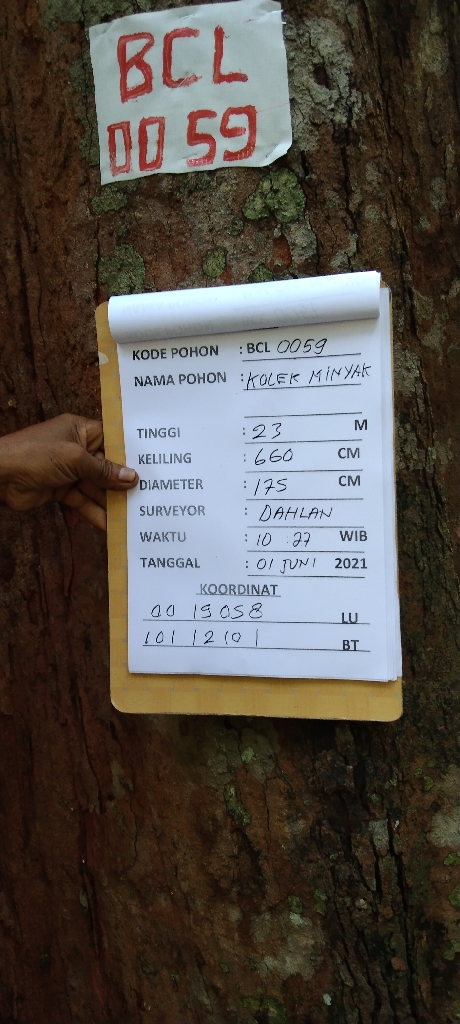 BCL
0059
KODE POHON : BCL 0059
NAMA POHON : KOLEK MINYAK
TINGGI : 23 M
KELILING : 660 CM
DIAMETER : 175 CM
SURVEYOR : DAHLAN
WAKTU : 10:27 WIB
TANGGAL : 01 JUNI 2021
KOORDINAT
00 19058 LU
101 12101 BT